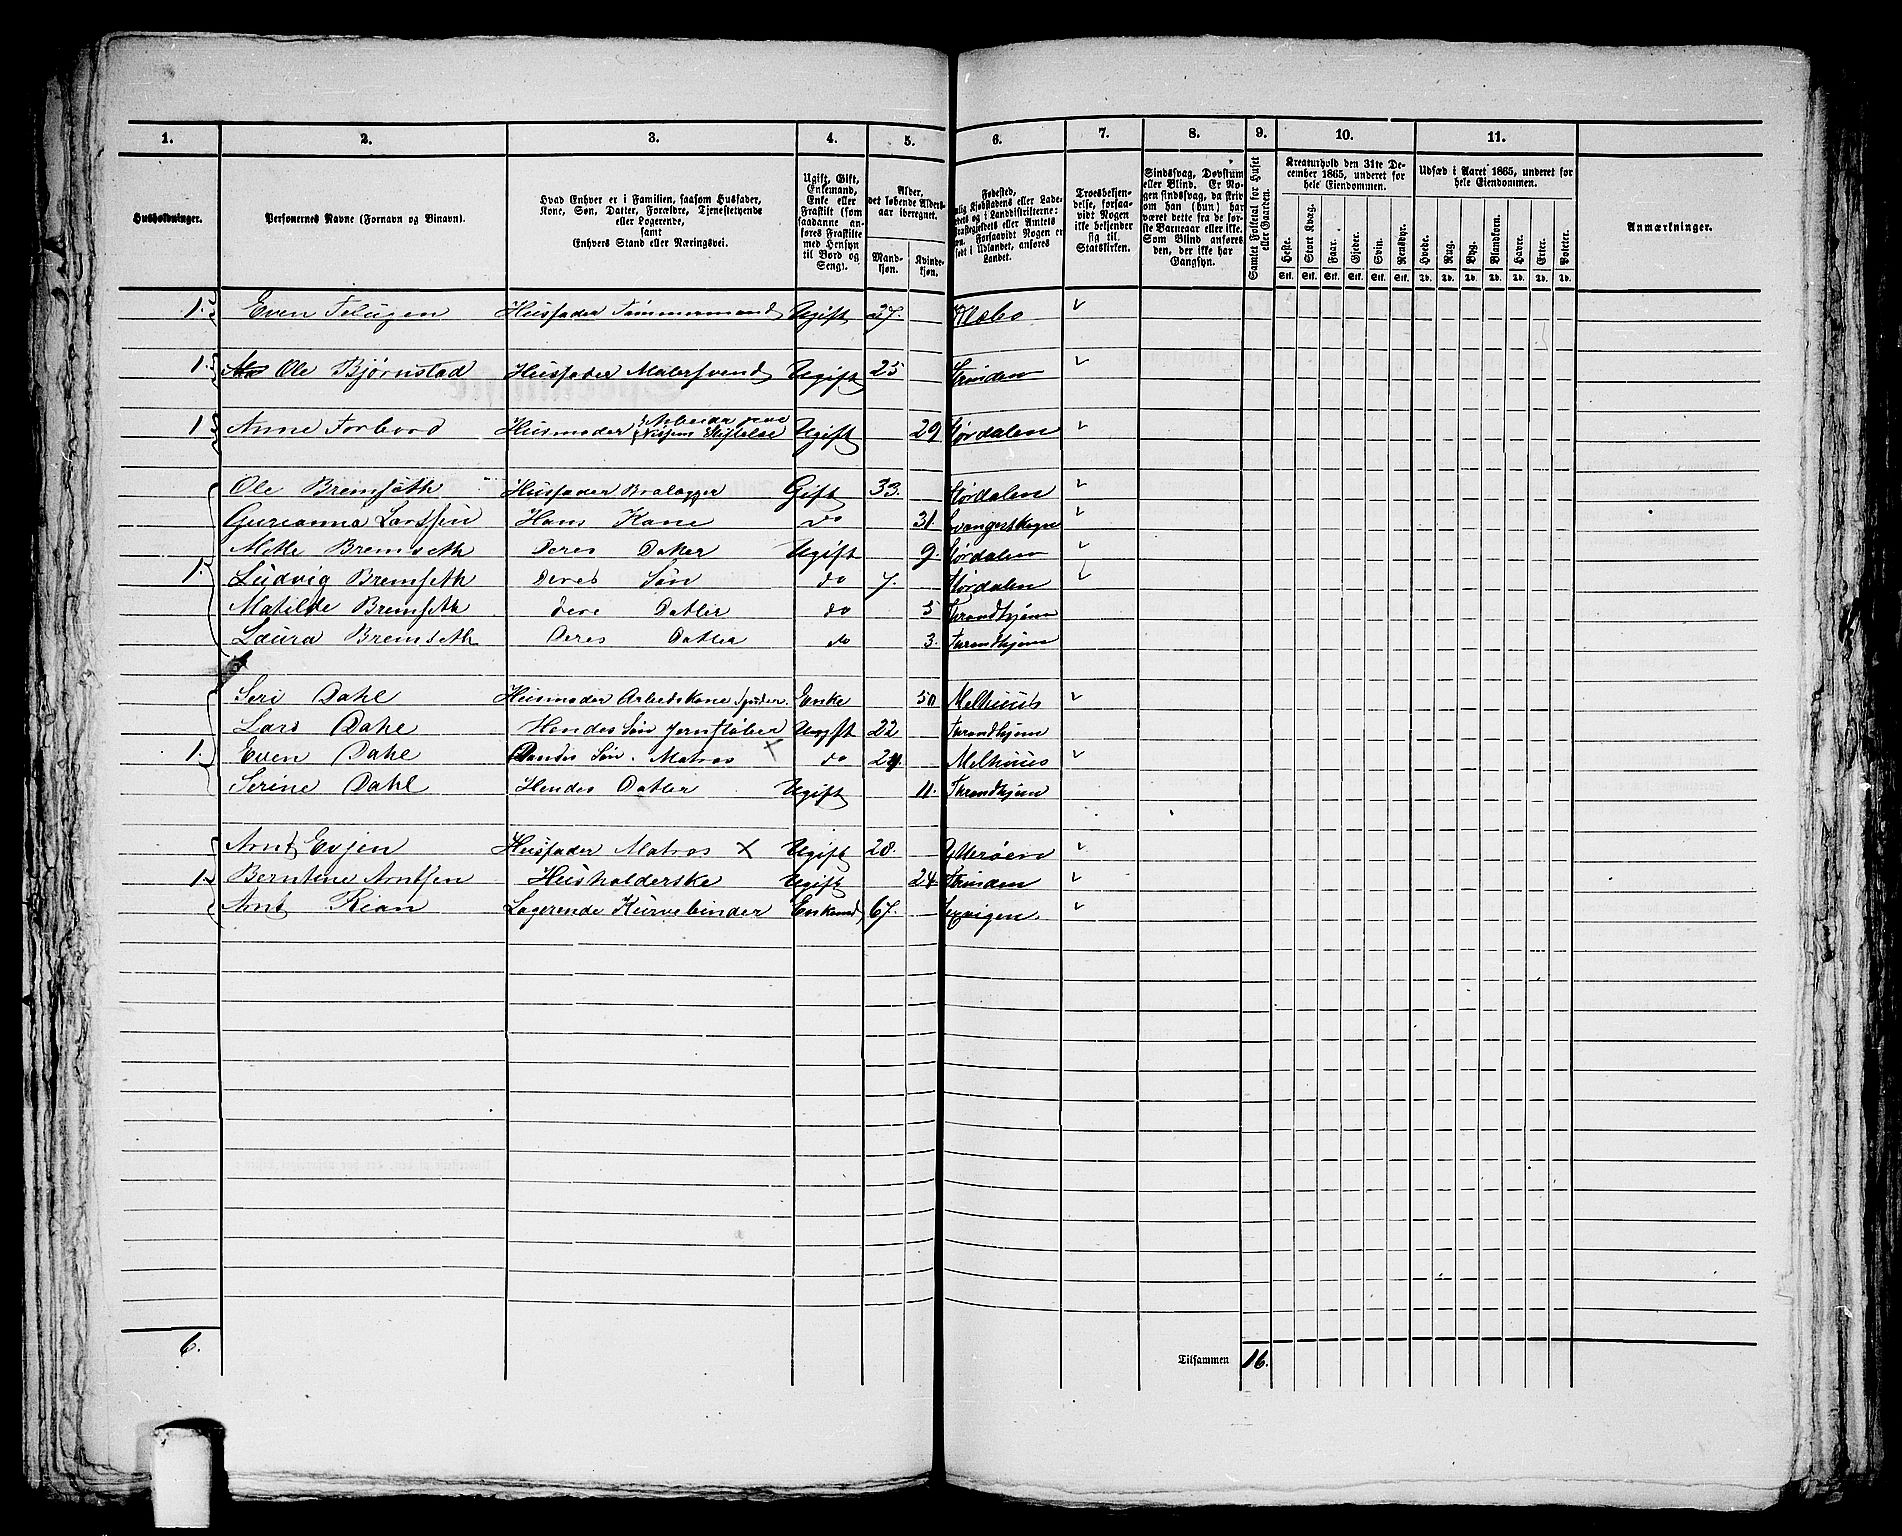 1. 2. 3. 4. 5. 6. 7. 8. 9. 10. 11.
Husholdninger.
Personernes Navne (Fornavn og Binavn).
Hvad Enhver er i Familien, saasom Husfader,
Kone, Søn, Datter, Forældre, Tjenestetyende
eller Logerende,
samt
Enhvers Stand eller Næringsvei.
Ugift, Gift,
Enkemand,
Enke eller
Fraskilt (som
saadanne an-
føres Fraskilte
med Hensyn
til Bord og
Seng).
Alder,
det løbende Alders-
aar iberegnet.
Mand-
kjøn.
Kvinde-
kjøn.
Fødested,
Troesbekjen-
delse, forsaa-
vidt Nogen
ikke bekjender
sig til
Statskirken.
Sindssvag, Døvstum
eller Blind. Er No-
gen sindssvag, da skriv
om han (hun) har
været dette fra de før-
ste Barneaar eller ikke.
Som Blind anføres
den, der ikke har
Gangsyn.
Samlet Folketal for Huset
eller Gaarden.
Kreaturhold den 31te De-
cember 1865, underet for
hele Eiendommen.
Heste. Stort Kvæg. Faar. Gjeder. Svin. Rensdyr.
Stk. Stk. Stk. Stk. Stk. Stk.
Udsæd i Aaret 1865, underet for
hele Eiendommen.
Hvede. Rug. Byg. Blandkorn. Havre. Erter. Poteter.
Td. Td. Td. Td. Td. Td. Td.
Anmærkninger.
1. Even Husfader Tømmermand Ugift 27. Klæbo
1. Ole Bjørnstad Husfader Malersvend Ugift 25 Strinden
1. Anne Forbord Husmoder Ugift 29 Størdalen
Ole Bremseth Husfader Gift 33. Størdalen
Gurianna Larssen Hans Kone do 31.
Mette Bremseth Deres Datter Ugift 9. Størdalen
1. Ludvig Bremseth Deres Søn do 7. Størdalen
Matilde Bremseth Dere Datter do 5 Throndhjem
Laura Bremseth Deres Datter do 3. Throndhjem
Seri Dahl Husmoder Arbedskone Enke 50 Melhuus
Lars Dahl Hendes Søn Jernstøber Ugift 22 Throndhjem
1. Even Dahl Søn. Matros do Melhuus
Serine Dahl Hendes Datter Ugift 11. Throndhjem
Arnt Evjen Husfader Matros × Ugift 28. Ytterøen
1. Berntine Arntsen Husholderske Ugift 24 Strinden
Arnt Rian Logerende Kurvebinder Enkemd 67.
6.
Tilsammen 16.